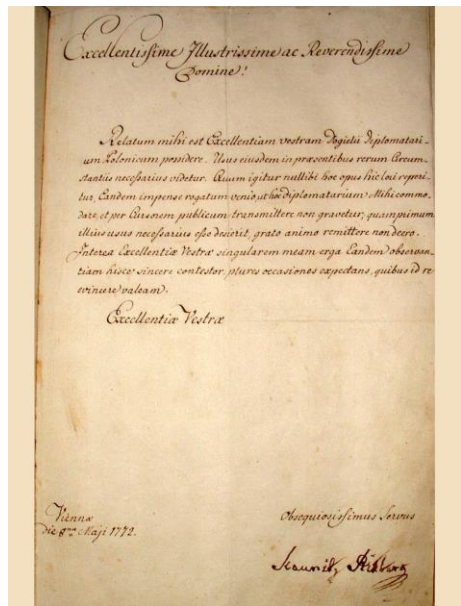 Excellentissime Illustrissime ac Reverendissime
Domine!
Relatum mihi est Excellentiam vestram Dogielii diplomatari-
um Polonicum possidere. Usus ejusdem in præsentibus rerum Circum-
stantiis necessarius videtur. Quum igitur nullibi hoc opus hic loci reperi-
tur, Eandem impense rogatum venio, ut hoc diplomatarium Mihi commo-
dare, et per Cursorem publicum transmittere non gravetur, quam primum
illius usus necessarius esse desierit, grato animo remittere non deero.
Interea Excellentiæ Vestræ singularem meam erga Eandem observan-
tiam hisce sincere contestor, plures occasiones expectans, quibus id re
evincere valeam.
Excellentiæ Vestræ
Viennæ
die Maji 1772.
Obsequiosissimus Servus
Kaunitz Rittberg